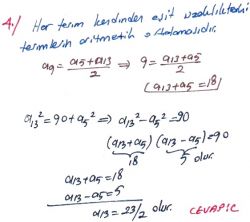 4./ Her terim kendinden eşit uzaklıktaki
terimlerin aritmetik ortalamasıdır.
a₉ = (a₅+a₁₃)/2 ⇒ 9 = (a₁₃+a₅)/2
[a₁₃+a₅=18]
a₁₃² = 90 + a₅² ⇒ a₁₃² - a₅² = 90
(a₁₃+a₅) (a₁₃-a₅) = 90
18 5 olur.
a₁₃+a₅=18
a₁₃-a₅=5
a₁₃ = 23/2 olur. CEVAP:C